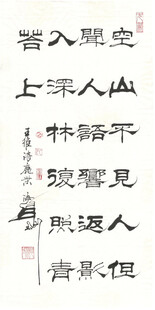 空山不見人但
聞人語響返影
入深林復照青
苔上
王維詩鹿柴